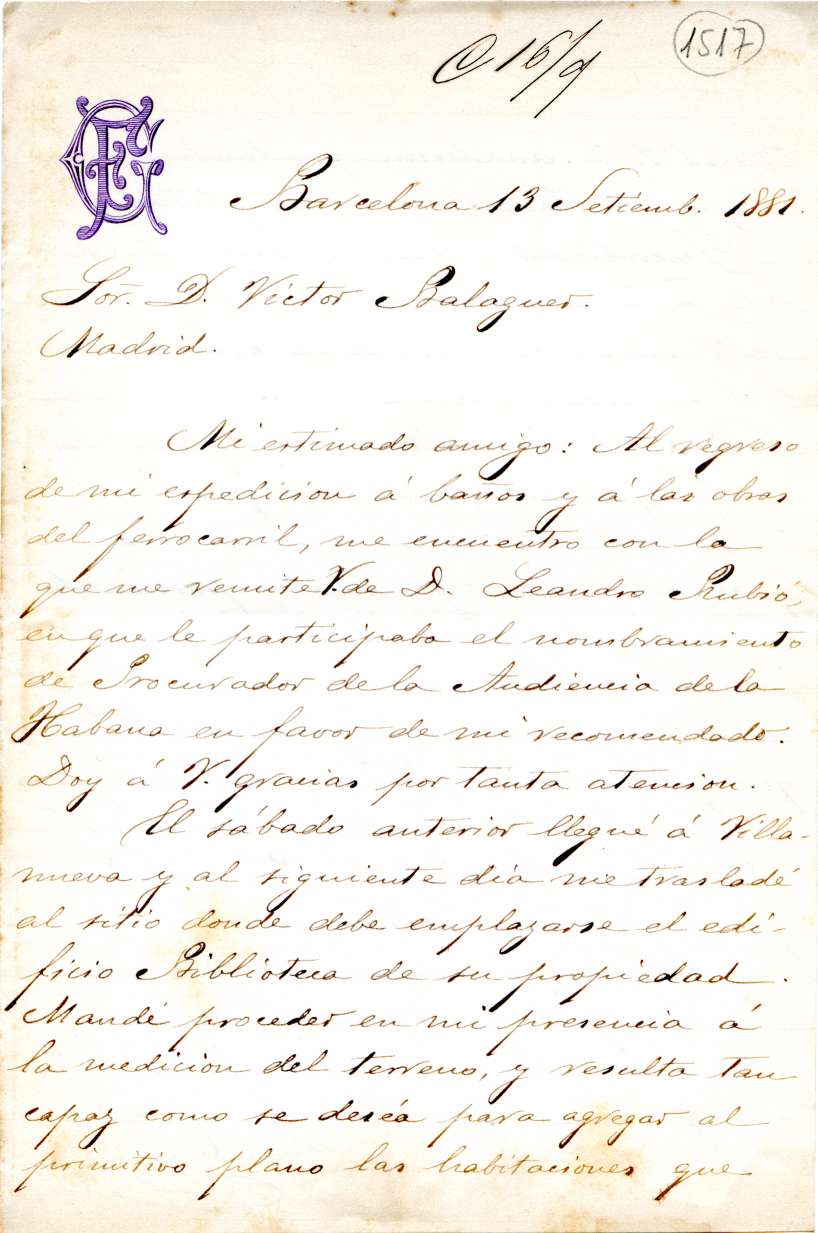 C 16/9
1517
FG
Barcelona 13 Setiemb. 1881.
Sor. D. Víctor Balaguer.
Madrid.
Mi estimado amigo: Al regreso
de mi espedicion á baños y á las obras
del ferrocarril, me encuentro con la
que me remite V. de D. Leandro Rubió,
en que le participaba el nombramiento
de Procurador de la Audiencia de la
Habana en favor de mi recomendado.
Doy á V. gracias por tanta atencion.
El sábado anterior llegué á Villa-
nueva y al siguiente día me trasladé
al sitio donde debe emplazarse el edi-
ficio Biblioteca de su propiedad.
Mandé proceder en mi presencia á
la medicion del terreno, y resulta tan
capaz como se deséa para agregar al
primitivo plano las habitaciones que